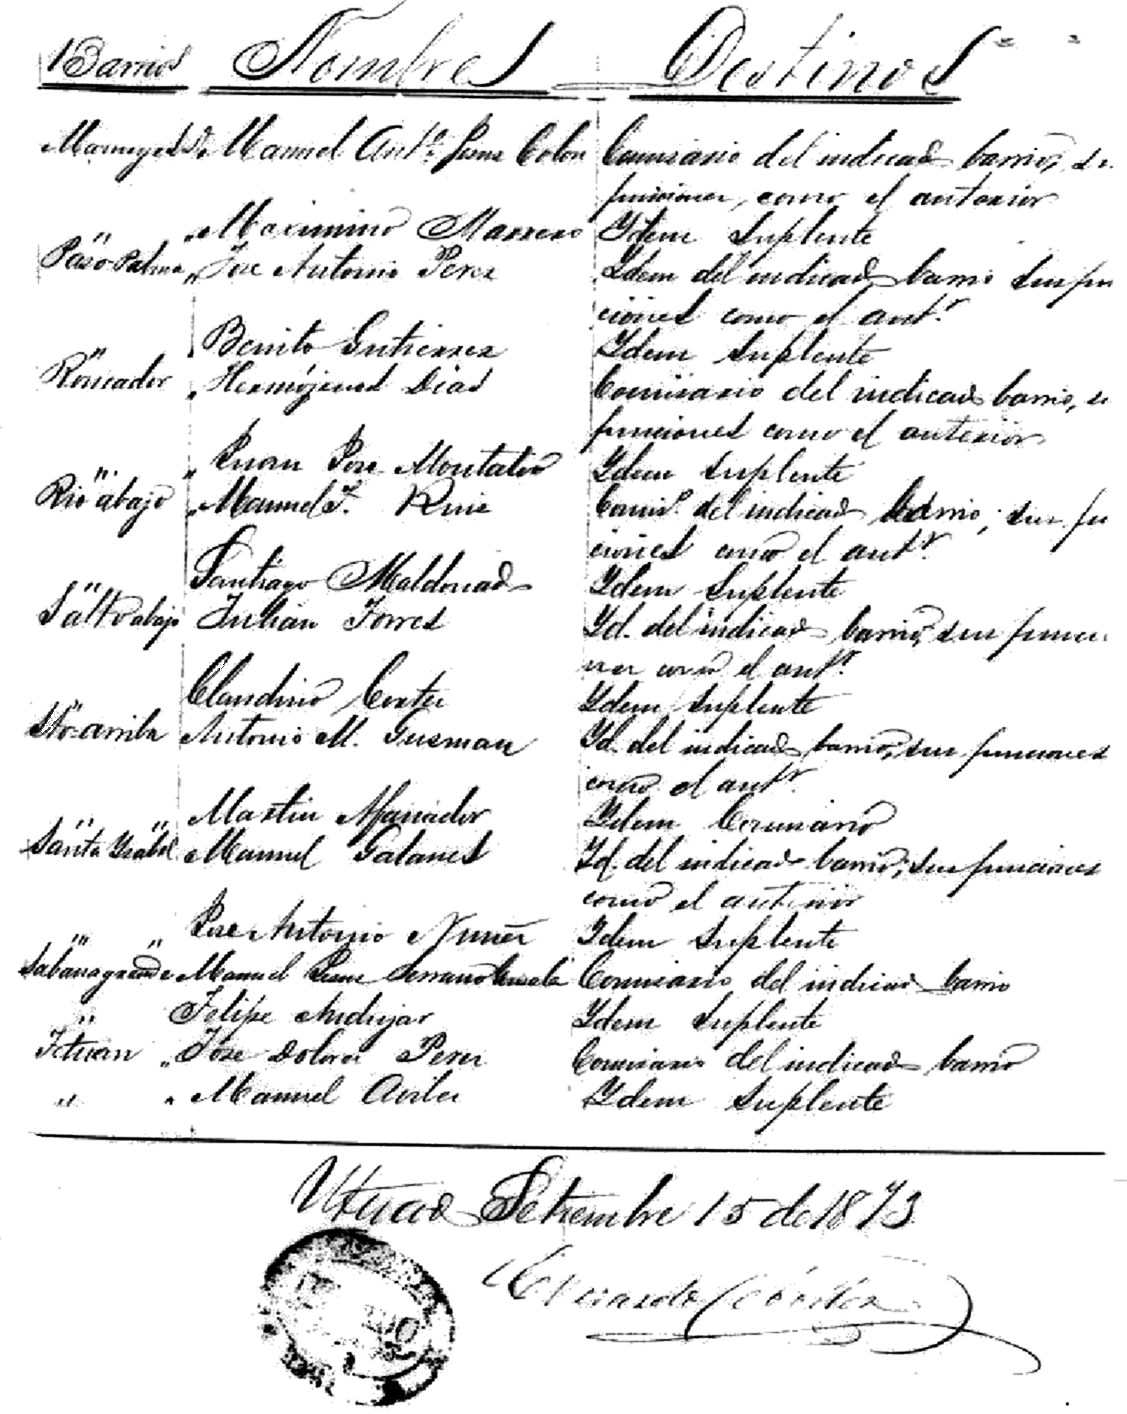 Barrios Nombres Destinos
Mameyes Dn. Manuel Anto. Colon Comisario del indicado barrio, su
funciones, como el anterior
" " Maximino Marrero Idem Suplente
Paso Palma " Jose Antonio Perez Idem del indicado barrio sus fun
ciones como el antr.
" " Benito Gutierrez Idem Suplente
Roncador " Hermójenes Dias Comisario del indicado barrio, su
funciones como el anterior
" " Juan Jose Montalvo Idem Suplente
Rio abajo " Manuel F. Ruiz Comiso. del indicado barrio, sus fun
ciones como el antr.
" Santiago Maldonado Idem Suplente
Salto abajo Julian Torres Yd. del indicado barrio, sus funcio
nes como el antr.
" Claudino Cortes Idem Suplente
Sto. arriba Antonio M. Gusman Yd. del indicado barrio, sus funciones
como el antr.
" Martin Afanador Idem Comisario
Santa Ysabel " Manuel Galanes Yd. del indicado barrio, sus funciones
como el anterior
" " Jose Antonio Nuñez Idem Suplente
Sabanagrande Manuel Serrano Comisario del indicado barrio
" " Felipe Andujar Idem Suplente
Tetuan " Jose Dolores Perez Comisario del indicado barrio
" " Manuel Aviles Idem Suplente
Utuado Setiembre 15 de 1873